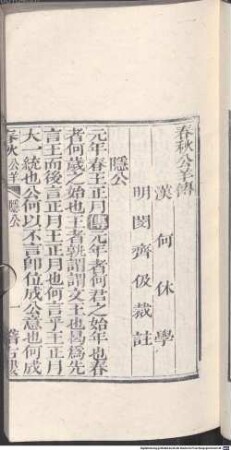 春秋公羊傳
漢何休學
明閔齊伋裁註
隱公
元年春王正月傳元年者何君之始年也春
者何歲之始也王者孰謂謂文王也曷爲先
言王而後言正月王正月也何言乎王正月
大一統也公何以不言即位成公意也何成
春秋公羊 隱公